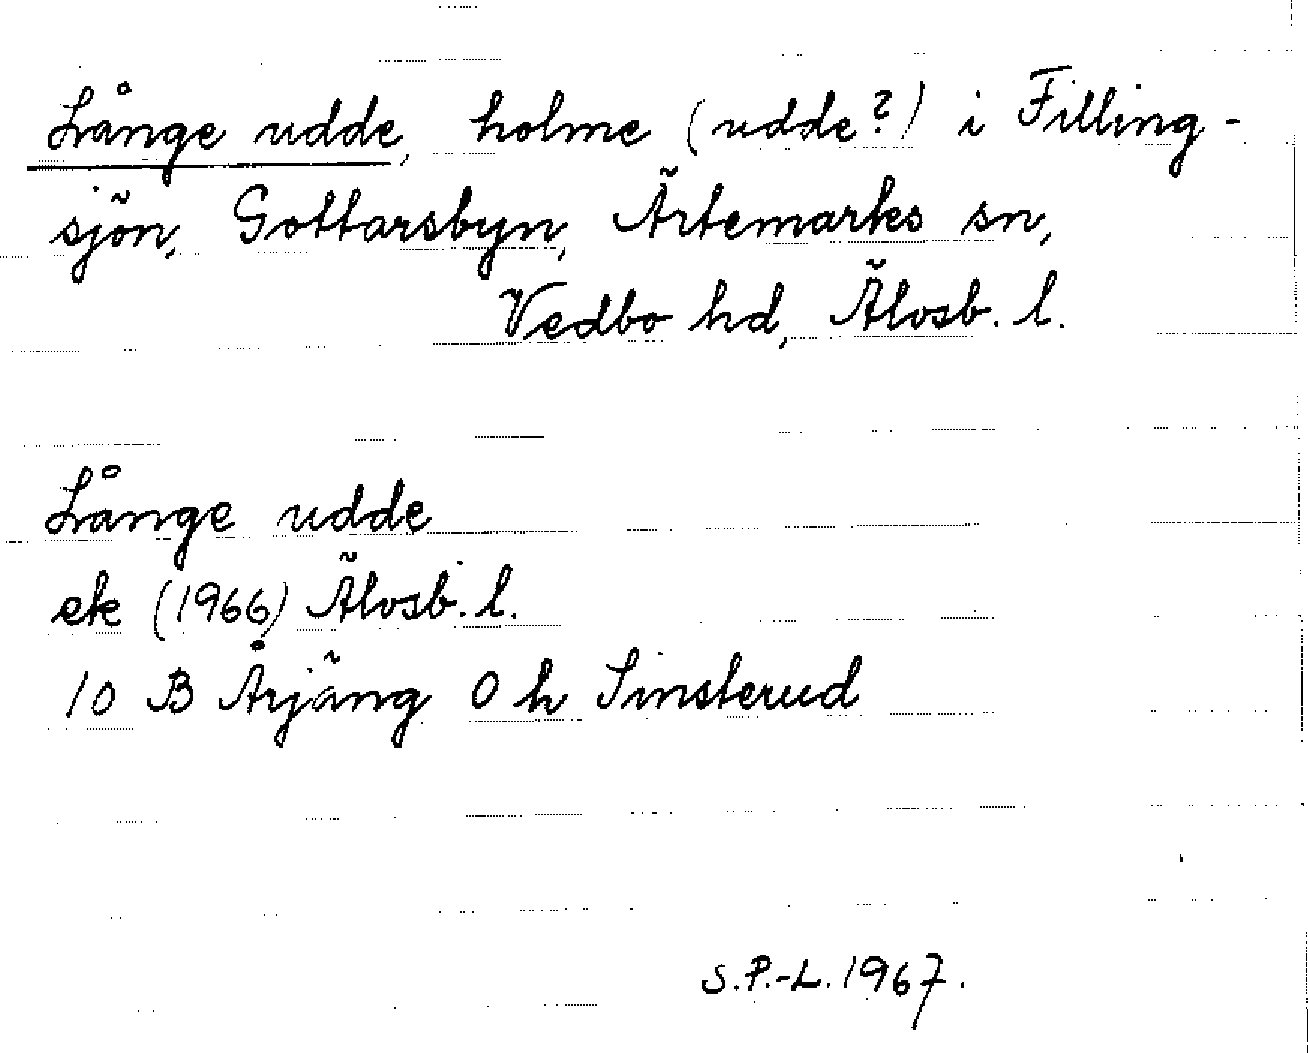 Långe udde, holme (udde?) i Filling-
sjön, Gottarsbyn, Ärtemarks sn,
Vedbo hd, Älvsb. l.
Långe udde
ek (1966) Älvsb. l.
10 B Årjäng 0 h Sinsterud
S.P.-L. 1967.